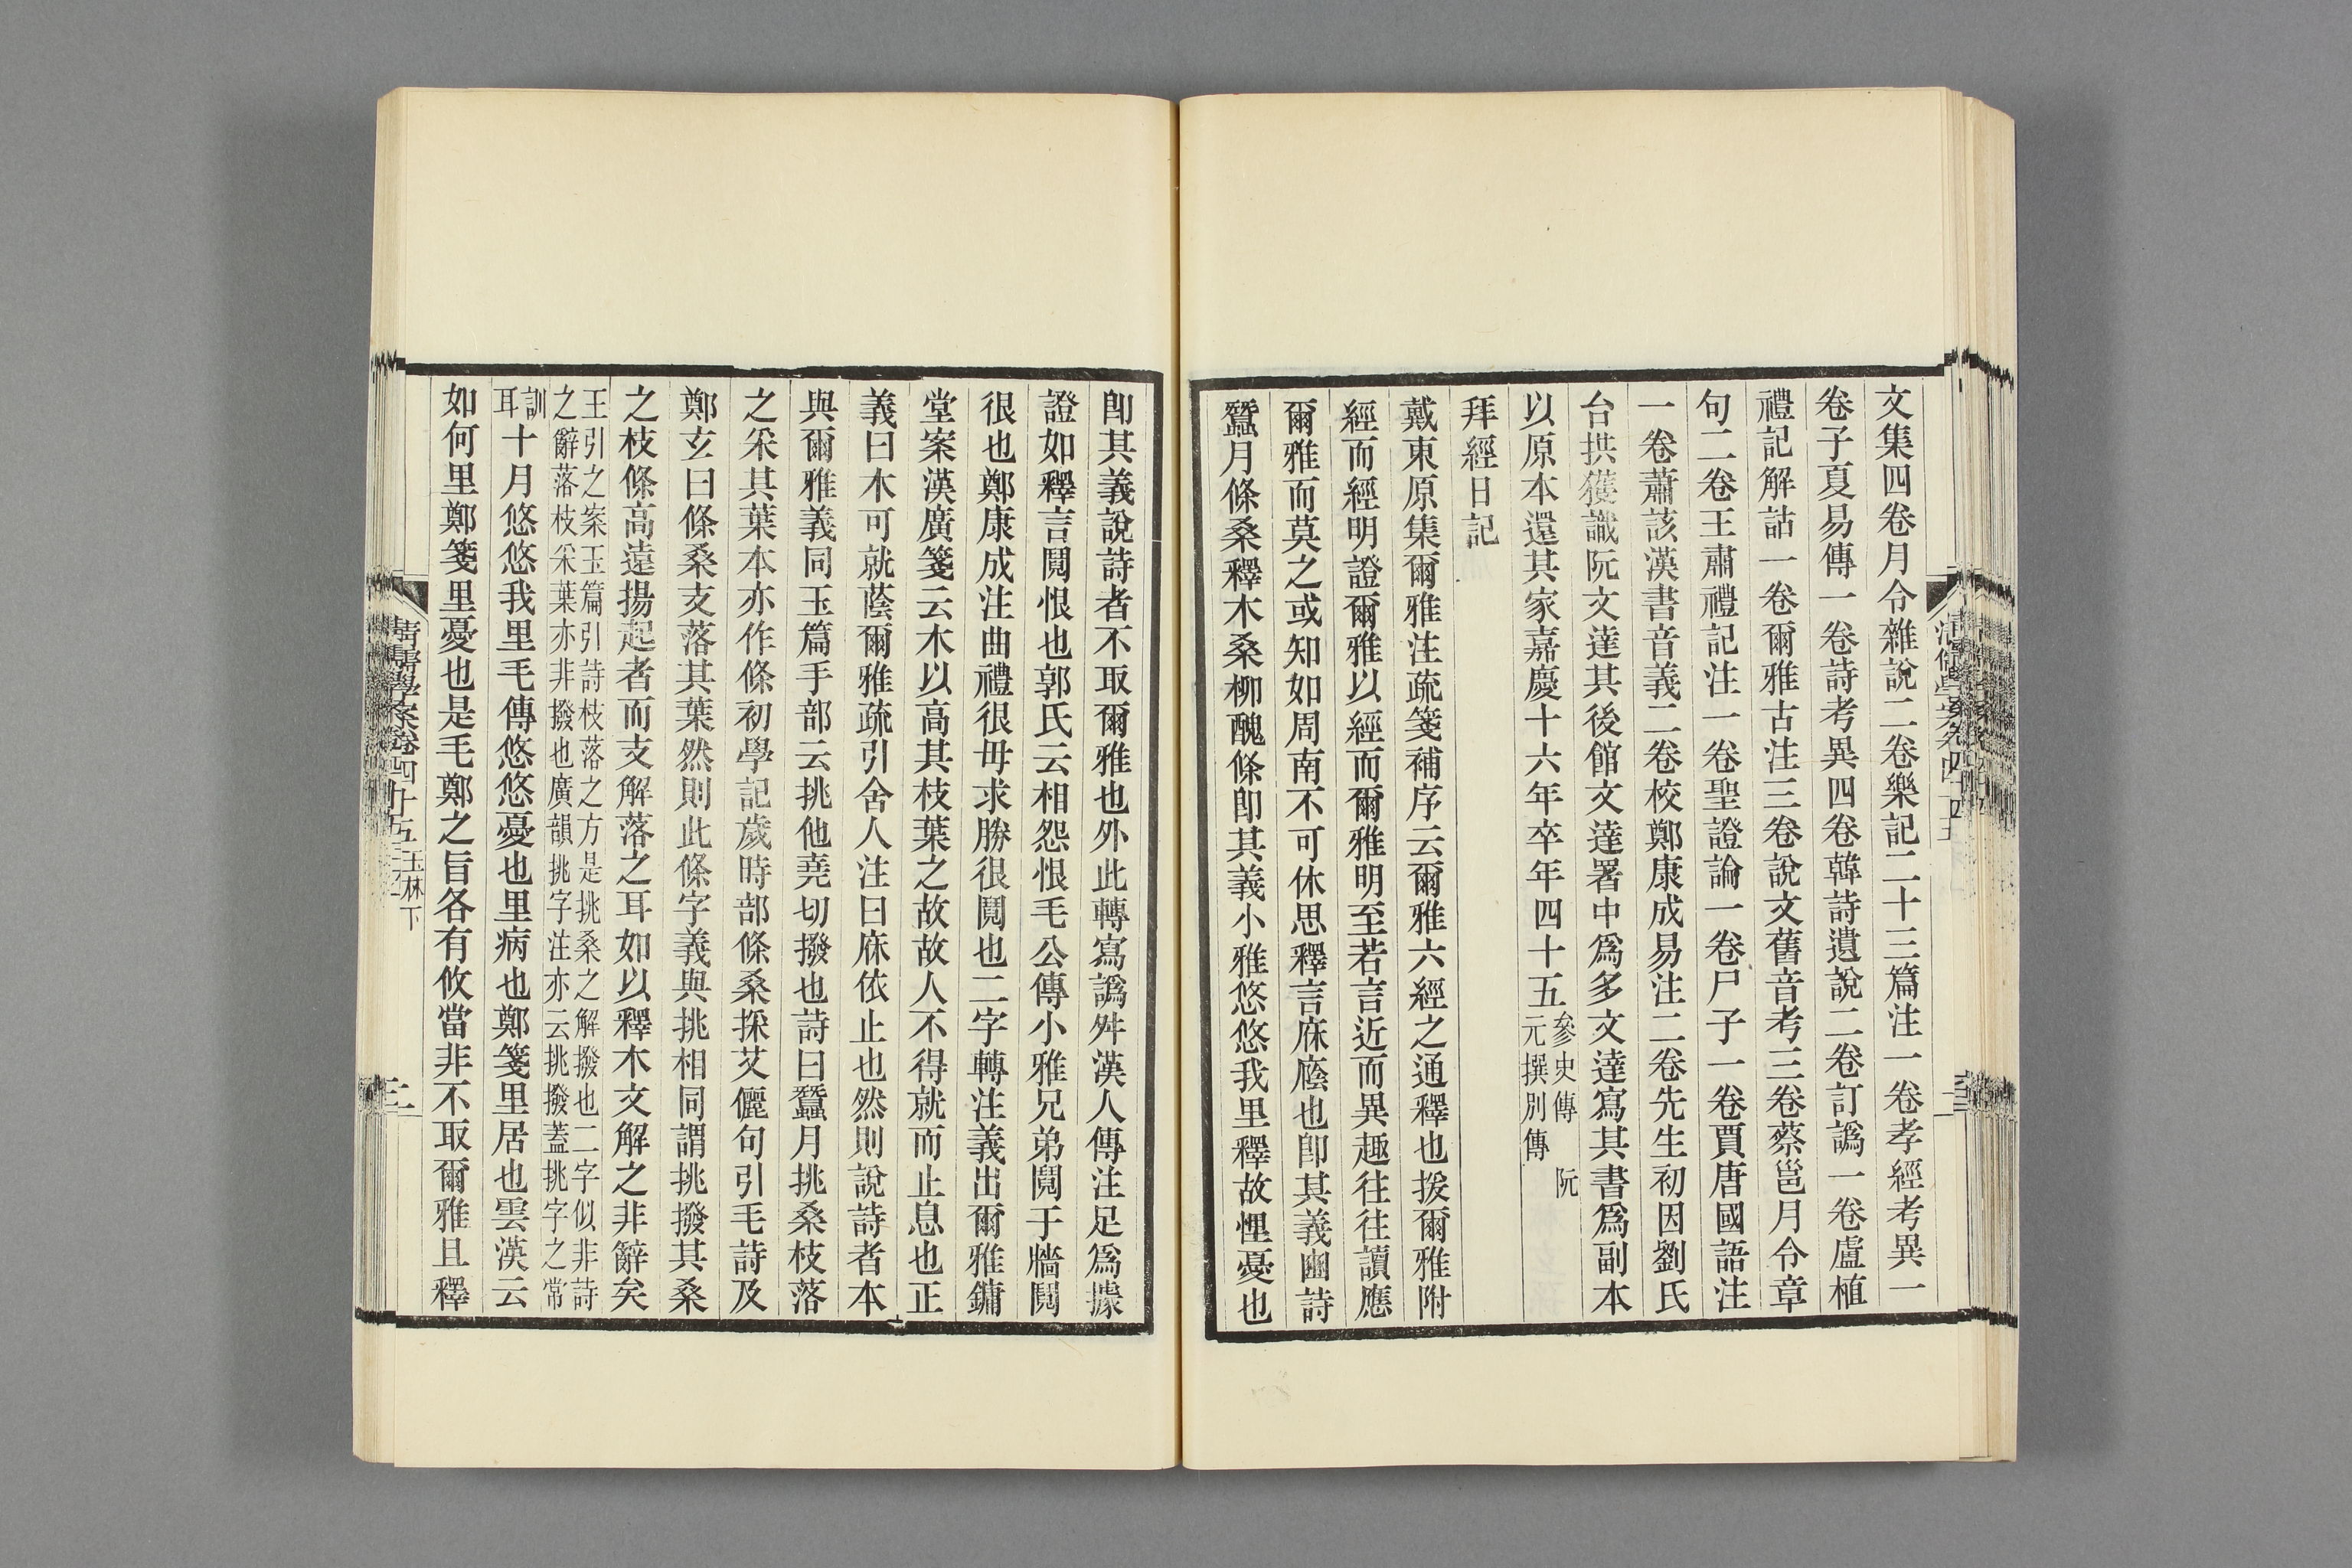 文集四卷月令雜說二卷樂記二十三篇注一卷孝經考異一
卷子夏易傳一卷詩考異四卷韓詩遺說二卷訂譌一卷盧植
禮記解詁一卷爾雅古注三卷說文舊音考三卷蔡邕月令章
句二卷王肅禮記注一卷聖證論一卷尸子一卷賈唐國語注
一卷蕭該漢書音義二卷校鄭康成易注二卷先生初因劉氏
台拱獲識阮文達其後館文達署中爲多文達寫其書爲副本
以原本還其家嘉慶十六年卒年四十五參史傳 阮
元撰別傳
拜經日記
戴東原集爾雅注疏箋補序云爾雅六經之通釋也援爾雅附
經而經明證爾雅以經而爾雅明至若言近而異趣往往讀應
爾雅而莫之或知如周南不可休思釋言庥廕也卽其義豳詩
蠶月條桑釋木桑柳醜條卽其義小雅悠悠我里釋故悝憂也
卽其義說詩者不取爾雅也外此轉寫譌舛漢人傳注足爲據
證如釋言鬩恨也郭氏云相怨恨毛公傳小雅兄弟鬩于牆鬩
很也鄭康成注曲禮很毋求勝很鬩也二字轉注義出爾雅鏞
堂案漢廣箋云木以高其枝葉之故故人不得就而止息也正
義曰木可就蔭爾雅疏引舍人注曰庥依止也然則說詩者本
與爾雅義同玉篇手部云挑他堯切撥也詩曰蠶月挑桑枝落
之采其葉本亦作條初學記歲時部條桑採艾儷句引毛詩及
鄭玄曰條桑支落其葉然則此條字義與挑相同謂挑撥其桑
之枝條高遠揚起者而支解落之耳如以釋木文解之非辭矣
王引之案玉篇引詩枝落之方是挑桑之解撥也二字似非詩
之辭落枝采葉亦非撥也廣韻挑字注亦云挑撥蓋挑字之常
訓
耳十月悠悠我里毛傳悠悠憂也里病也鄭箋里居也雲漢云
如何里鄭箋里憂也是毛鄭之旨各有攸當非不取爾雅且釋
清儒學案卷四十五 玉林下
三
二